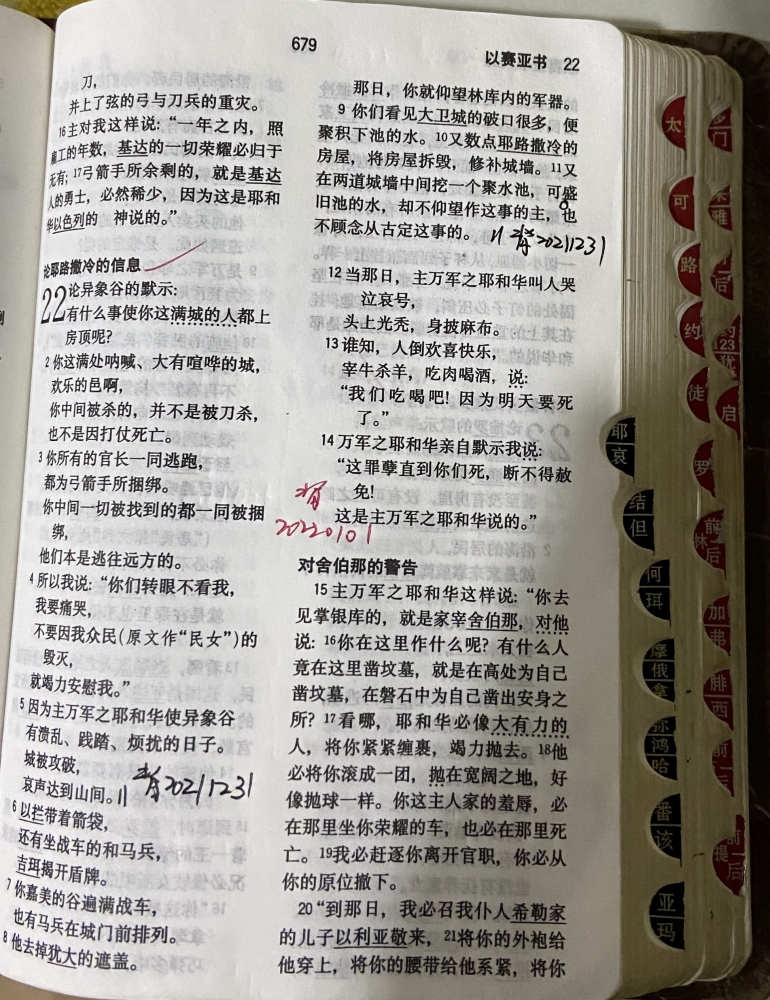 679
以赛亚书 22
刀，
并上了弦的弓与刀兵的重灾。
16主对我这样说：“一年之内，照
雇工的年数，基达的一切荣耀必归于
无有；17弓箭手所余剩的，就是基达
人的勇士，必然稀少，因为这是耶和
华以色列的 神说的。”
论耶路撒冷的信息
22论异象谷的默示：
有什么事使你这满城的人都上
房顶呢？
2 你这满处呐喊、大有喧哗的城，
欢乐的邑啊，
你中间被杀的，并不是被刀杀，
也不是因打仗死亡。
3 你所有的官长一同逃跑，
都为弓箭手所捆绑。
你中间一切被找到的都一同被捆
绑，
他们本是逃往远方的。
4 所以我说：“你们转眼不看我，
我要痛哭，
不要因我众民（原文作“民女”）的
毁灭，
就竭力安慰我。”
5 因为主万军之耶和华使异象谷
有溃乱、践踏、烦扰的日子。
城被攻破，
哀声达到山间。 背20211231
6 以拦带着箭袋，
还有坐战车的和马兵，
吉珥揭开盾牌。
7 你嘉美的谷遍满战车，
也有马兵在城门前排列。
8 他去掉犹大的遮盖。
那日，你就仰望林库内的军器。
9 你们看见大卫城的破口很多，便
聚积下池的水。10又数点耶路撒冷的
房屋，将房屋拆毁，修补城墙。11又
在两道城墙中间挖一个聚水池，可盛
旧池的水，却不仰望作这事的主，也
不顾念从古定这事的。 背20211231
12 当那日，主万军之耶和华叫人哭
泣哀号，
头上光秃，身披麻布。
13 谁知，人倒欢喜快乐，
宰牛杀羊，吃肉喝酒，说：
“我们吃喝吧！因为明天要死
了。”
14 万军之耶和华亲自默示我说：
“这罪孽直到你们死，断不得赦
免！
这是主万军之耶和华说的。”
背
20220101
对舍伯那的警告
15 主万军之耶和华这样说：“你去
见掌银库的，就是家宰舍伯那，对他
说：16你在这里作什么呢？有什么人
竟在这里凿坟墓，就是在高处为自己
凿坟墓，在磐石中为自己凿出安身之
所？17看哪，耶和华必像大有力的
人，将你紧紧缠裹，竭力抛去。18他
必将你滚成一团，抛在宽阔之地，好
像抛球一样。你这主人家的羞辱，必
在那里坐你荣耀的车，也必在那里死
亡。19我必赶逐你离开官职，你必从
你的原位撤下。
20 “到那日，我必召我仆人希勒家
的儿子以利亚敬来，21将你的外袍给
他穿上，将你的腰带给他系紧，将你
太
可
路
约
徒
罗
门
雅
后
约
123
犹
启
耶
哀
结
但
何
珥
摩
俄
拿
弥
鸿
哈
番
该
亚
玛
前
林
后
加
弗
腓
西
前
后
前
提
后